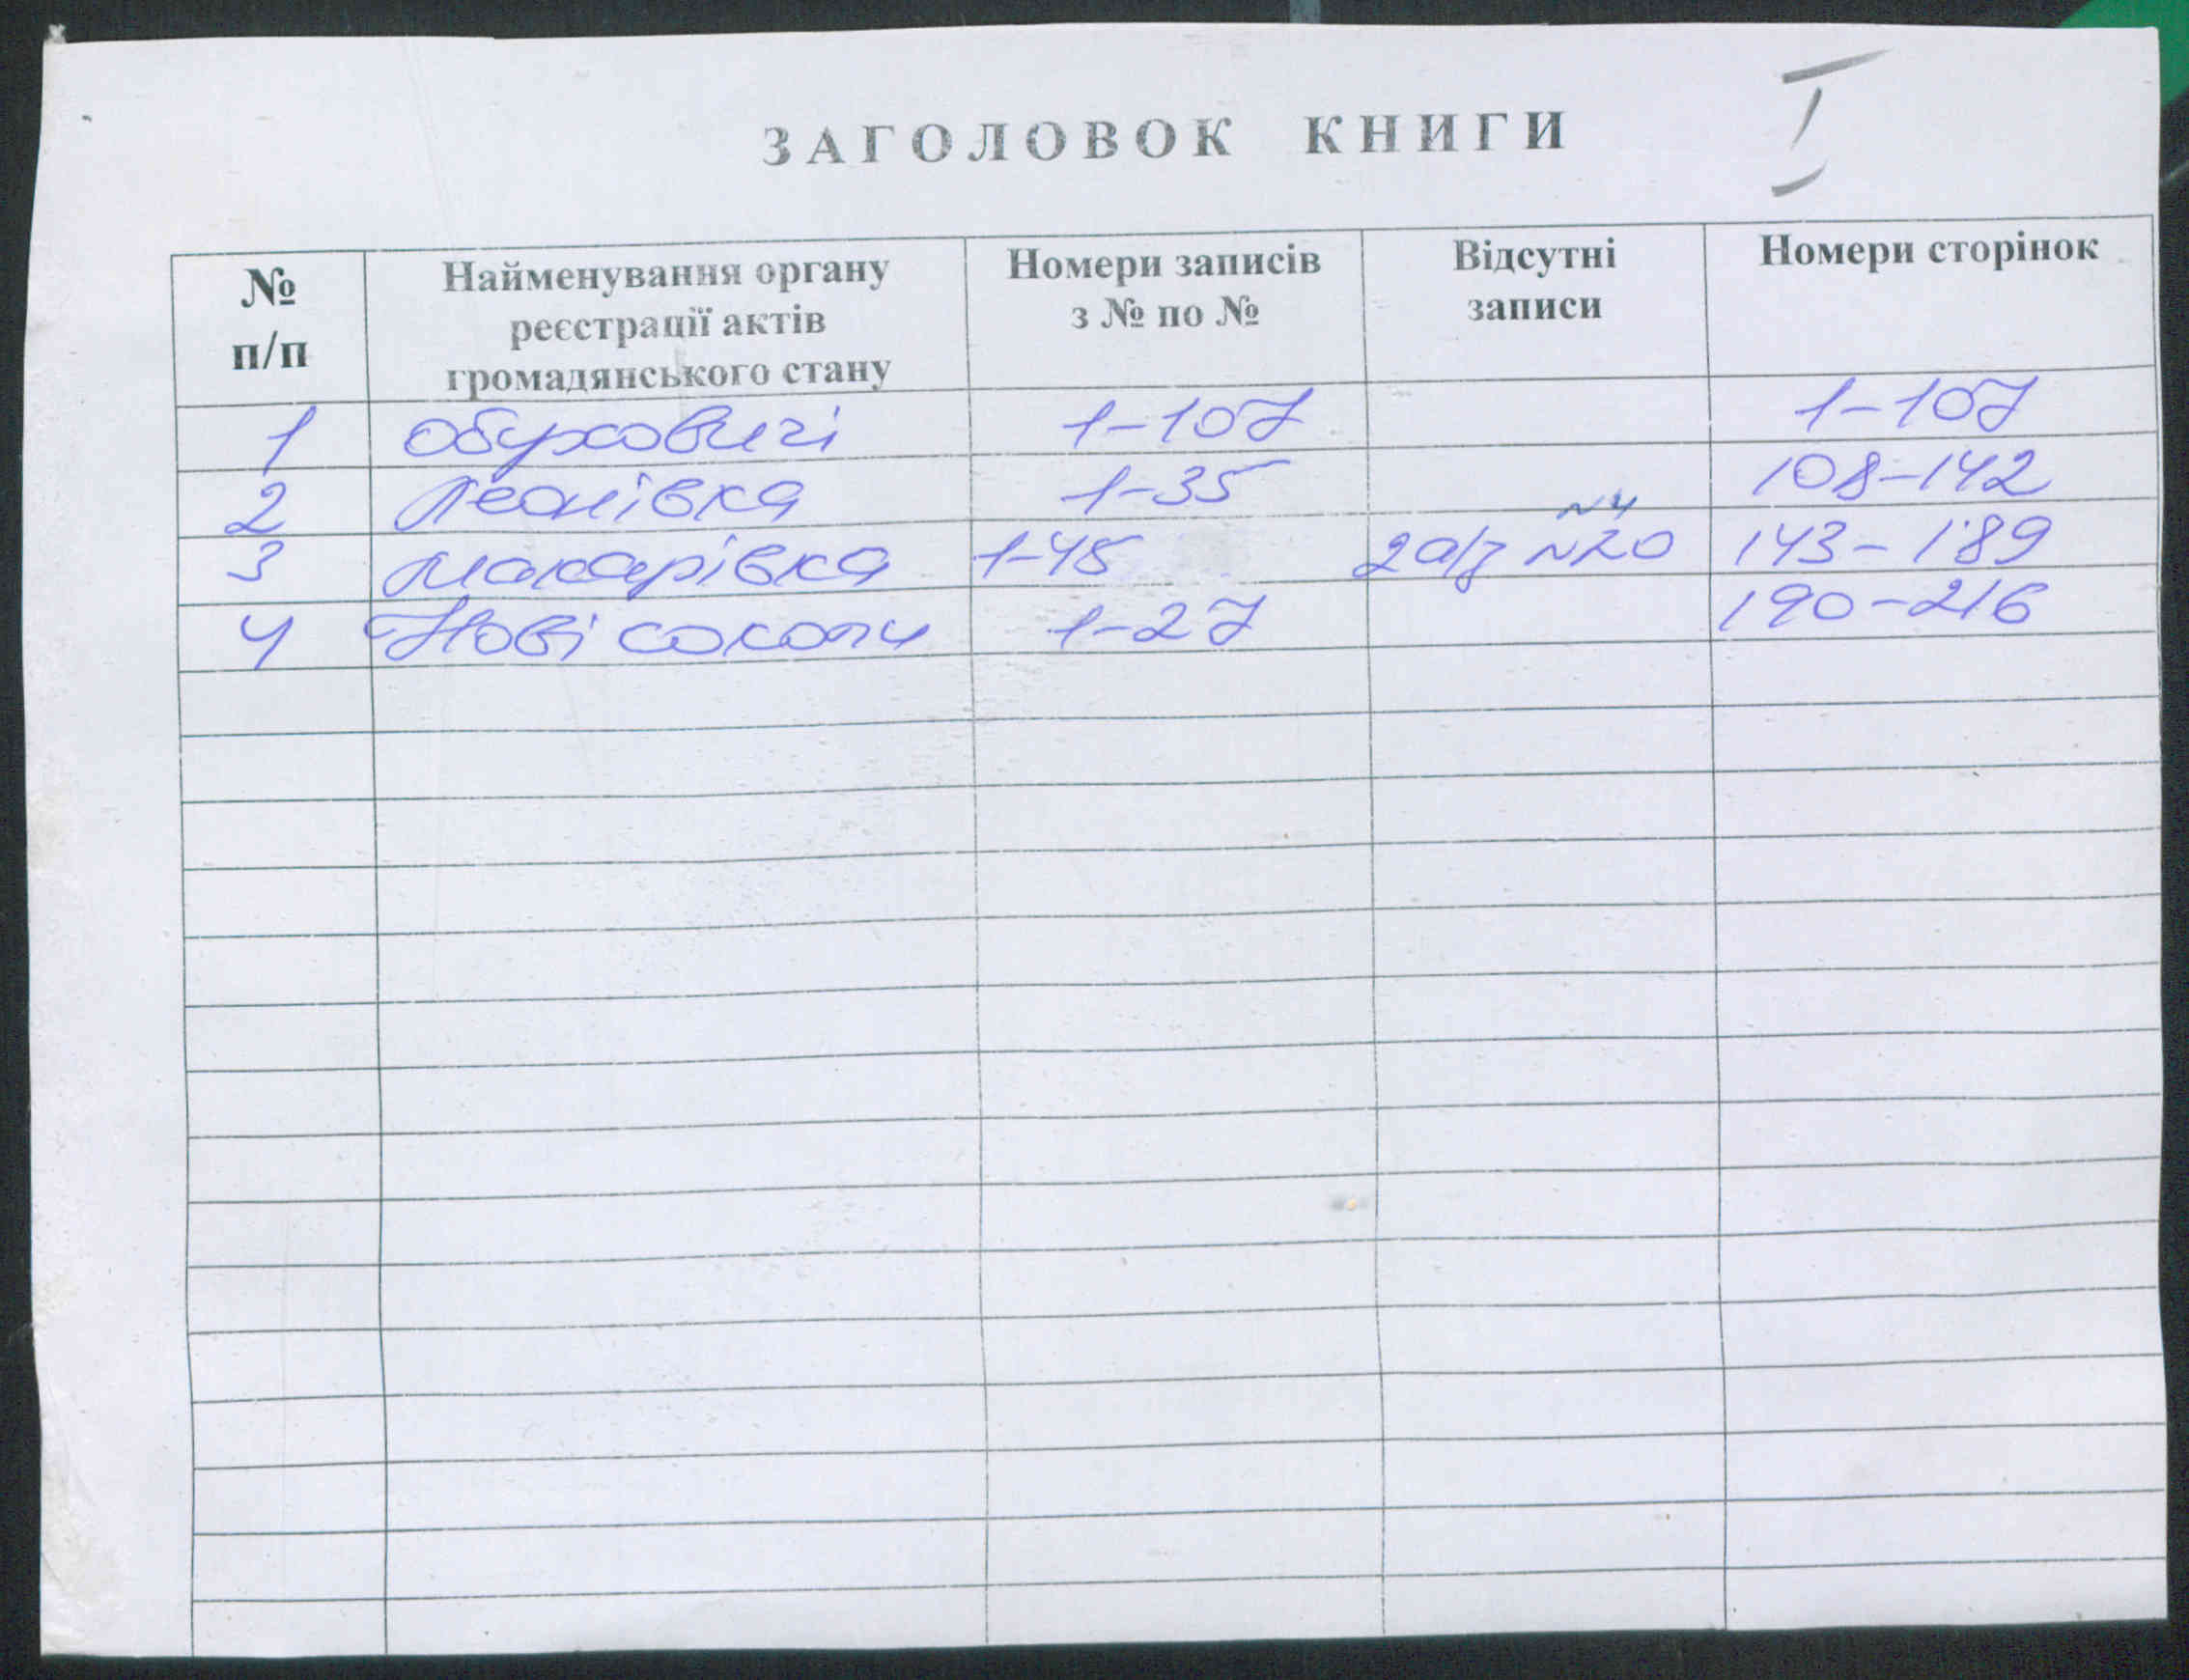 I
ЗАГОЛОВОК КНИГИ
№ п/п Найменування органу реєстрації актів громадянського стану Номери записів з № по № Відсутні записи Номери сторінок
1 Обуховичі 1-107 1-107
2 Леонівка 1-35 108-142
№4
3 Макарівка 1-48 2 а/з №20 143-189
4 Нові соколи 1-27 190-216